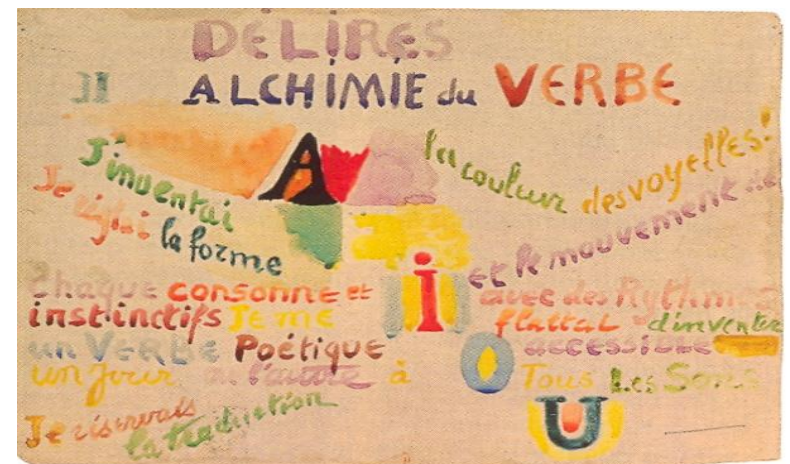 DÉLIRES
II ALCHIMIE du VERBE
J'inventai la couleur des voyelles!
A
Je réglai la forme et le mouvement de
chaque consonne et i avec des Rythmes
instinctifs Je me flattai d'inventer
un VERBE Poétique accessible
un jour ou l'autre à O Tous Les Sens
Je réservais la traduction U